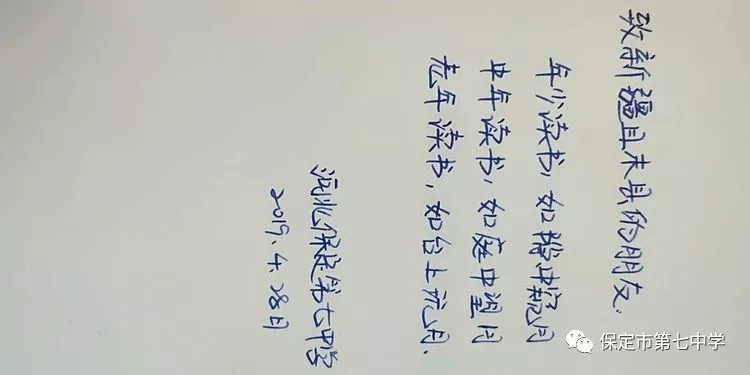 致新疆且末县的朋友.
年少读书,如隙中窥月
中年读书,如庭中望月
老年读书,如台上玩月.
河北保定第七中学
2019.4.28日
保定市第七中学